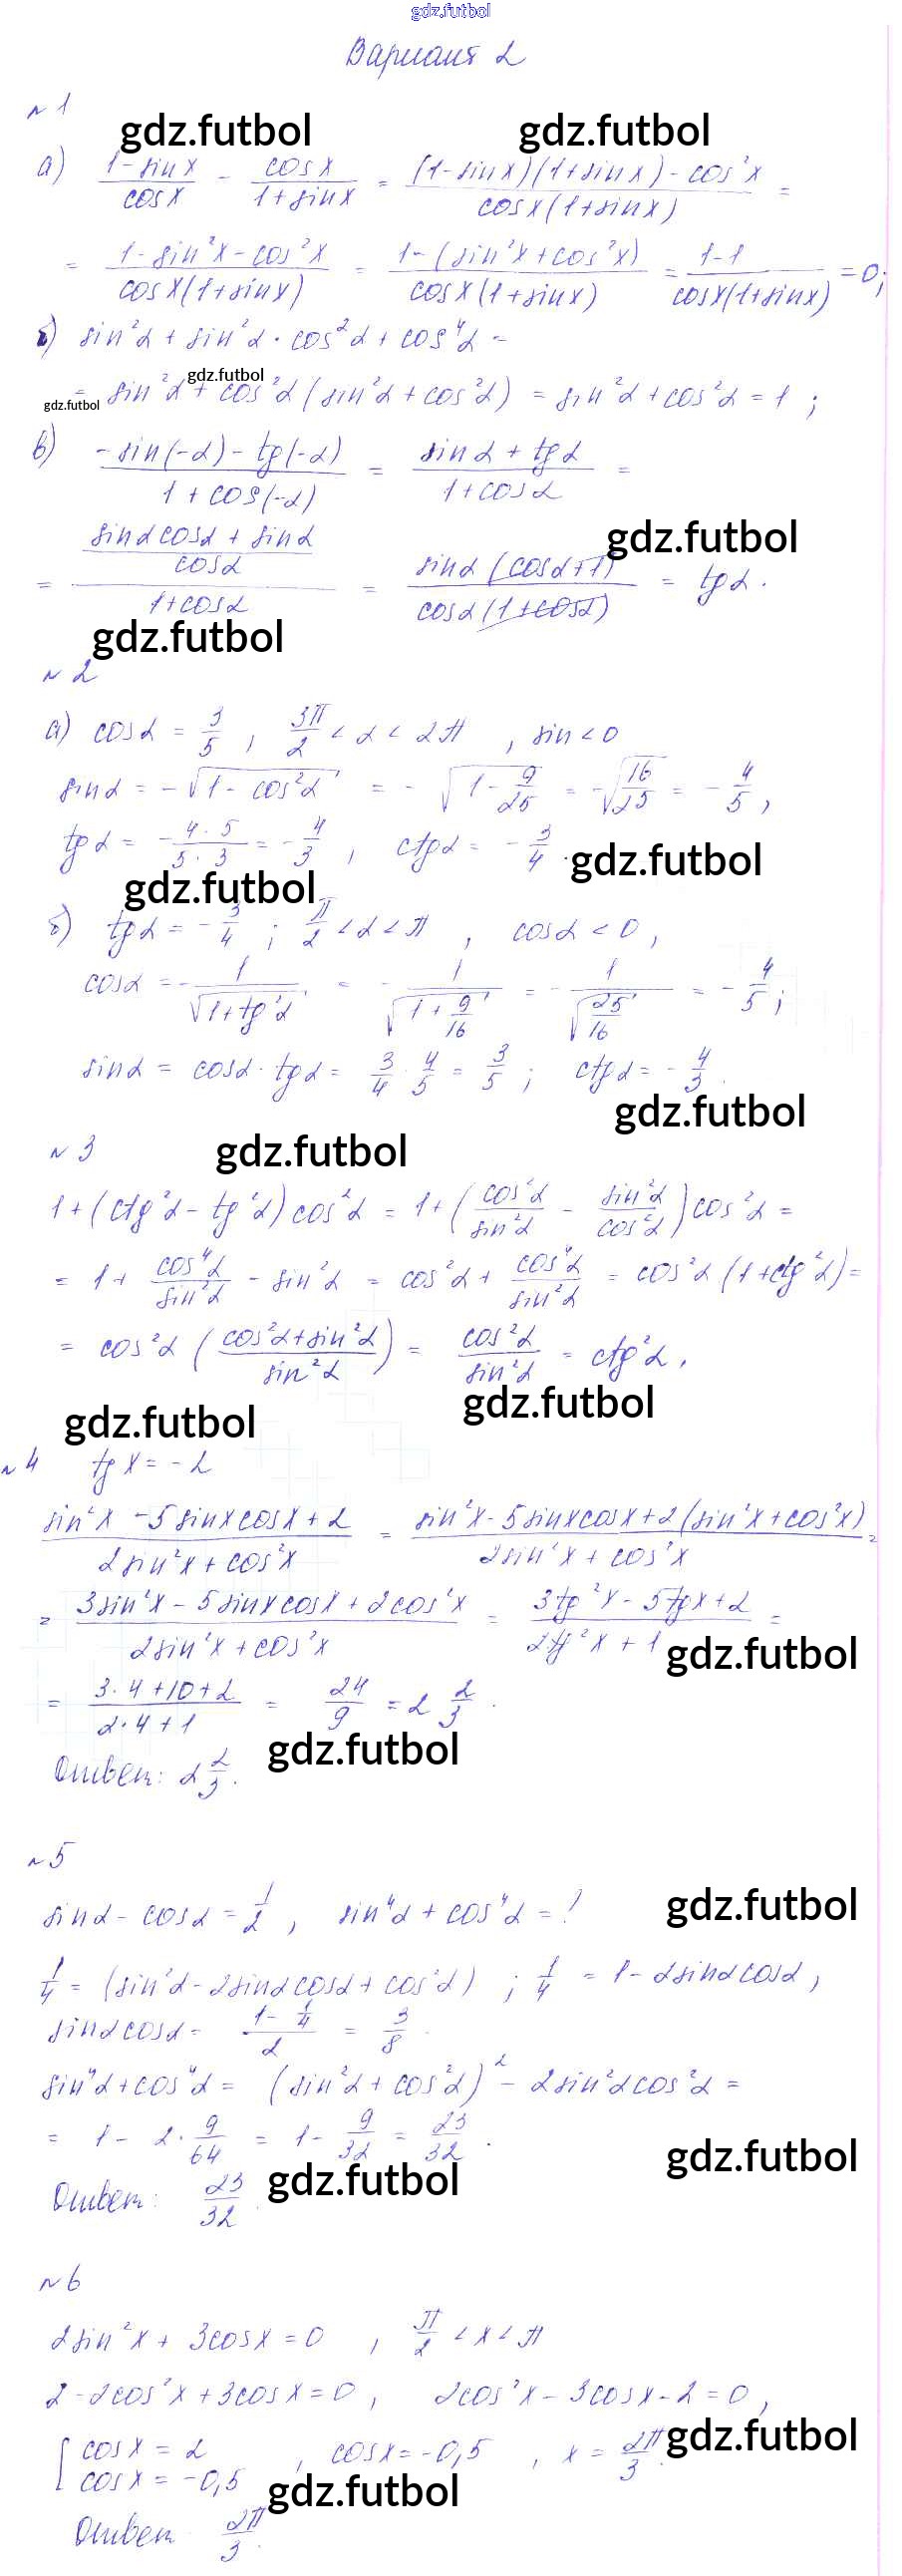 gdz.futbol
Вариант 2
№1
gdz.futbol gdz.futbol
а) (1-sinx)/cosx - cosx/(1+sinx) = ((1-sinx)(1+sinx)-cos²x)/(cosx(1+sinx)) =
= (1-sin²x-cos²x)/(cosx(1+sinx)) = (1-(sin²x+cos²x))/(cosx(1+sinx)) = (1-1)/(cosx(1+sinx)) = 0;
б) sin²α + sin²α · cos²α + cos⁴α =
gdz.futbol
= sin²α + cos²α (sin²α + cos²α) = sin²α + cos²α = 1 ;
gdz.futbol
в) (-sin(-α) - tg(-α))/(1 + cos(-α)) = (sinα + tgα)/(1+cosα) =
gdz.futbol
= ((sinα cosα + sinα)/cosα)/(1+cosα) = (sinα (cosα+1))/(cosα (1+cosα)) = tgα.
gdz.futbol
№2
а) cosα = 3/5 , 3π/2 < α < 2π , sin < 0
sinα = -√(1 - cos²α) = -√(1 - 9/25) = -√(16/25) = -4/5 ,
tgα = -(4·5)/(5·3) = -4/3 , ctgα = -3/4 .
gdz.futbol
gdz.futbol
б) tgα = -3/4 ; π/2 < α < π , cosα < 0 ,
cosα = -1/√(1+tg²α) = -1/√(1+9/16) = -1/√(25/16) = -4/5 ;
sinα = cosα · tgα = 3/4 · 4/5 = 3/5 ; ctgα = -4/3 .
gdz.futbol
№3
gdz.futbol
1+(ctg²α - tg²α) cos²α = 1+(cos²α/sin²α - sin²α/cos²α) cos²α =
= 1+ cos⁴α/sin²α - sin²α = cos²α + cos⁴α/sin²α = cos²α (1+ctg²α) =
= cos²α ((cos²α+sin²α)/sin²α) = cos²α/sin²α = ctg²α .
gdz.futbol
gdz.futbol
№4 tg x = -2
(sin²x - 5sinxcosx + 2)/(2sin²x + cos²x) = (sin²x - 5sinxcosx + 2(sin²x+cos²x))/(2sin²x + cos²x) =
= (3sin²x - 5sinxcosx + 2cos²x)/(2sin²x + cos²x) = (3tg²x - 5tgx + 2)/(2tg²x + 1) =
gdz.futbol
= (3·4+10+2)/(2·4+1) = 24/9 = 2 2/3 .
gdz.futbol
Ответ: 2 2/3 .
№5
gdz.futbol
sinα - cosα = 1/2 , sin⁴α + cos⁴α = ?
1/4 = (sin²α - 2sinαcosα + cos²α) ; 1/4 = 1 - 2sinαcosα ,
sinαcosα = (1 - 1/4)/2 = 3/8 .
sin⁴α + cos⁴α = (sin²α + cos²α)² - 2sin²αcos²α =
= 1 - 2·9/64 = 1 - 9/32 = 23/32 .
gdz.futbol
gdz.futbol
Ответ: 23/32 .
№6
2sin²x + 3cosx = 0 , π/2 < x < π
2 - 2cos²x + 3cosx = 0 , 2cos²x - 3cosx - 2 = 0 ,
[ cosx = 2
cosx = -0,5 , cosx = -0,5 , x = 2π/3 .
gdz.futbol
gdz.futbol
Ответ 2π/3 .